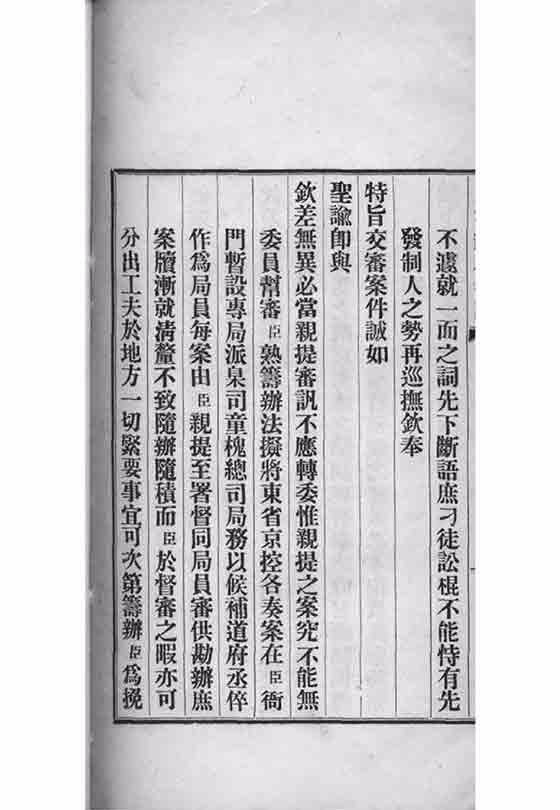 不遽就一面之詞先下斷語庶刁徒訟棍不能恃有先
發制人之勢再巡撫欽奉
特旨交審案件誠如
聖諭卽與
欽差無異必當親提審訊不應轉委惟親提之案究不能無
委員幫審臣熟籌辦法擬將東省京控各奏案在臣衙
門暫設專局派臬司童槐總司局務以候補道府丞倅
作爲局員每案由臣親提至署督同局員審供勘辦庶
案牘漸就清釐不致隨辦隨積而臣於督審之暇亦可
分出工夫於地方一切緊要事宜可次第籌辦臣爲挽